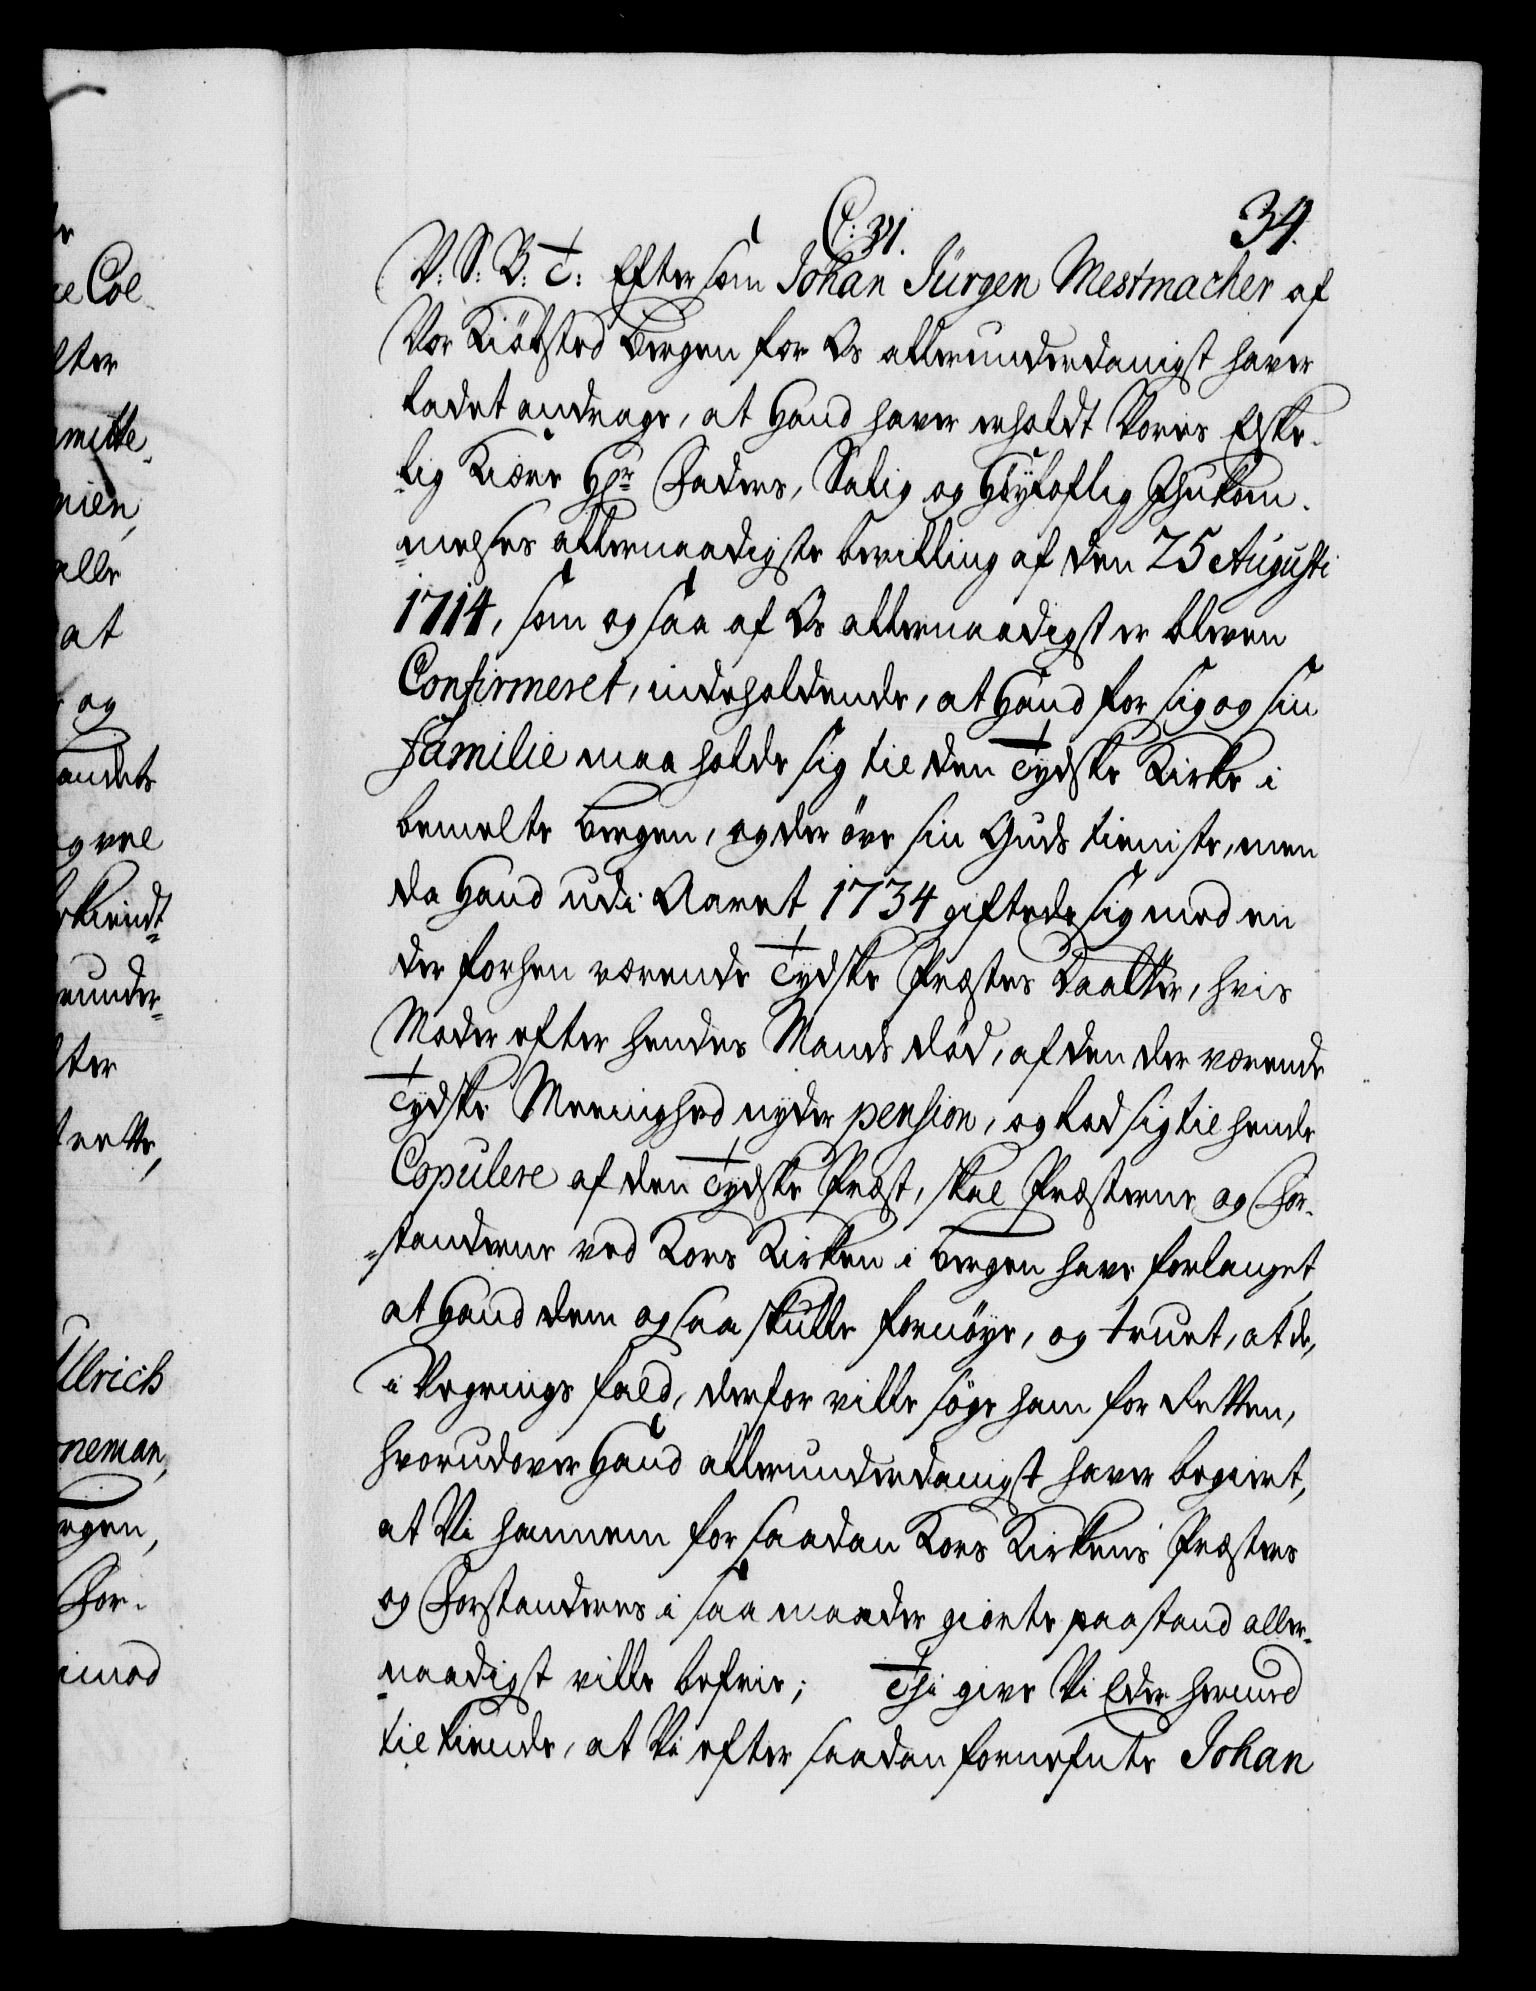 C: 31.
34.
V: S: B: T: Efter som Johan Jürgen Mestmacher af
Vor Kiöbsted Bergen for Os allerunderdanigst haver
ladet andrage, at Hand haver erholdt Vores Elske-
-lig Kiære Hr: Faders, Salig og Høyloflig Ihukom-
-melses allernaadigste bevilling af den 25 Augusti
1714, som og saa af Os allernaadigst er bleven
Confirmeret, indeholdende, at Hand for sig og sin
Familie maa holde sig til den Tydske Kirke i
bemelte Bergen, og der öve sin Guds tieniste, men
da Hand udi Aaret 1734 giftede sig med en
der forhen værende Tydske Præstes Daatter, hvis
Moder efter hendes Mands död, af den der værende
Tydske Meenighed nyder pension, og lod sig til hende
Copulere af den Tydske Præst, skal Præsterne og For-
-standerne ved Kors Kirken i Bergen have forlanget,
at Hand dem og saa skulle fornöye, og truet, at de,
i Vegrings fald, derfor ville söge ham for Retten,
hvorudover Hand allerunderdanigst haver begiert,
at Vi hannem for saadan Kors Kirkens Præsters
og Forstanderes i saa maader giorte paastand aller-
-naadigst ville befrie; Thi give Vi Eder hermed
tilkiende, at Vi efter saadan fornefnte Johan
e Col-
lter
mitte-
nien,
alle
at
og
andets
g vel
kiendt-
under-
ter
rette,
Ulrich
neman,
rgen,
For-
imod